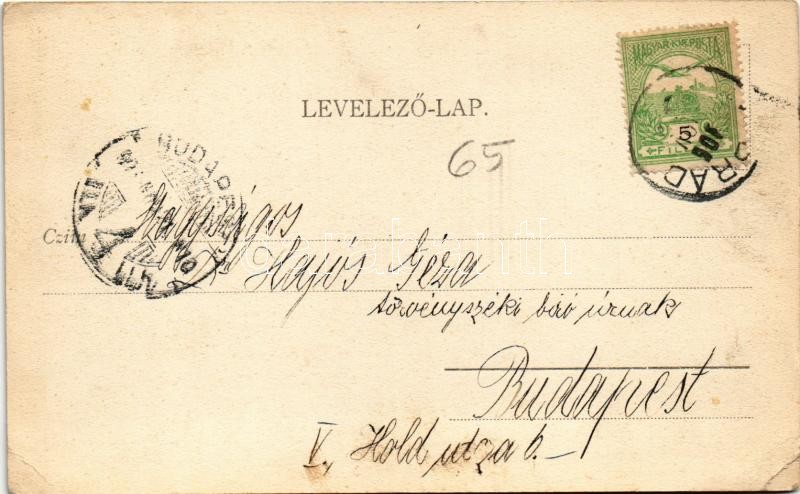 MAGYAR KIR. POSTA
5
FILLÉR
LEVELEZŐ-LAP.
65
BUDAPEST
Czím
Nagyságos
Hajós Géza
törvényszéki biró úrnak
Budapest
V., Hold utcza 6.